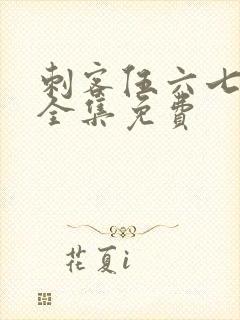 刺客伍六七
全集免费
花夏i